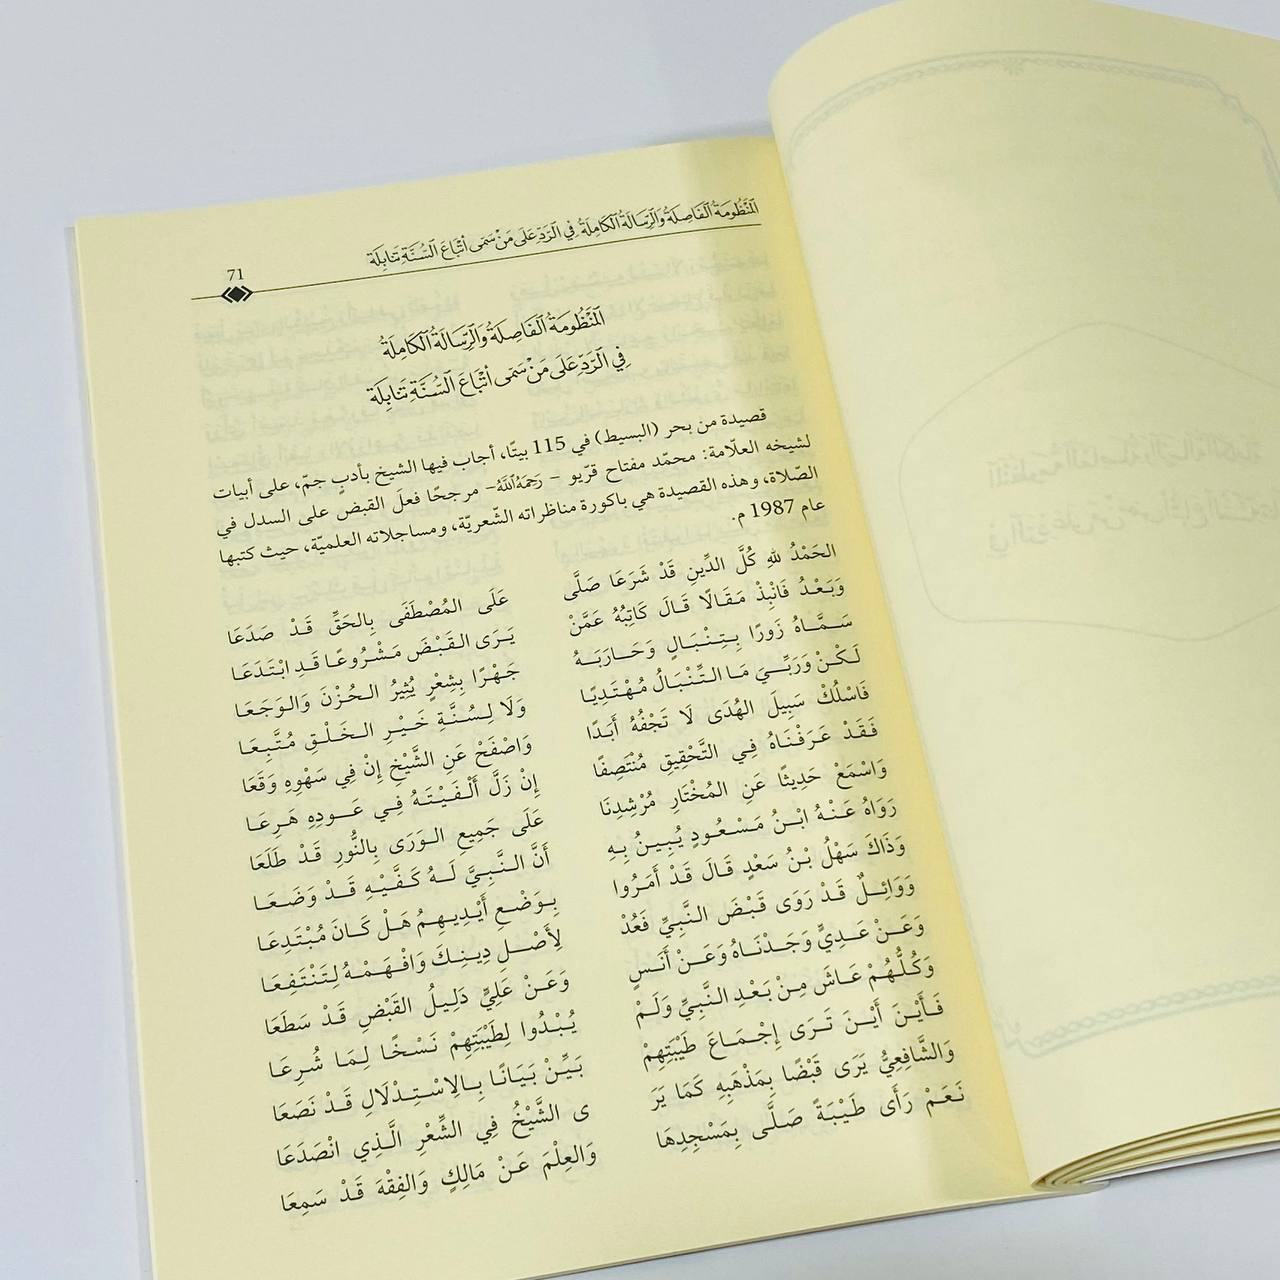 المَنْظُومَةُ الفَاصِلَةُ وَالرِّسَالَةُ الكَامِلَةُ فِي الرَّدِّ عَلَى مَنْ سَمَى أتْبَاعَ السُّنَّةِ تَنَابِلَة
71
المَنْظُومَةُ الفَاصِلَةُ وَالرِّسَالَةُ الكَامِلَةُ
فِي الرَّدِّ عَلَى مَنْ سَمَى أتْبَاعَ السُّنَّةِ تَنَابِلَة
قصيدة من بحر (البسيط) في 115 بيتًا، أجاب فيها الشيخ بأدبٍ جمّ، على أبيات
لشيخه العلّامة: محمّد مفتاح قريو – رَحِمَهُ اللَّهُ– مرجحًا فعلَ القبض على السدل في
الصّلاة، وهذه القصيدة هي باكورة مناظراته الشّعريّة، ومساجلاته العلميّة، حيث كتبها
عام 1987 م.
الحَمْدُ للهِ كُلَّ الدِّينِ قَدْ شَرَعَا صَلَّى عَلَى المُصْطَفَى بِالحَقِّ قَدْ صَدَعَا
وَبَعْدُ فَانْبِذْ مَقَالًا قَالَ كَاتِبُهُ عَمَّنْ يَرَى القَبْضَ مَشْرُوعًا قَدِ ابْتَدَعَا
سَمَّاهُ زَورًا بِتِنْبَالٍ وَحَارَبَهُ جَهْرًا بِشِعْرٍ يُثِيرُ الحُزْنَ وَالوَجَعَا
لَكِنْ وَرَبِّيَ مَا التِّنْبَالُ مُهْتَدِيًا وَلَا لِسُنَّةِ خَيْرِ الخَلْقِ مُتَّبِعَا
فَاسْلُكْ سَبِيلَ الهُدَى لَا تَجْفُهُ أَبَدًا وَاصْفَحْ عَنِ الشَّيْخِ إِنْ فِي سَهْوِهِ وَقَعَا
فَقَدْ عَرَفْنَاهُ فِي التَّحْقِيقِ مُنْتَصِفًا إِنْ زَلَّ أَلْفَيْتَهُ فِي عَودِهِ هَرِعَا
وَاسْمَعْ حَدِيثًا عَنِ المُخْتَارِ مُرْشِدِنَا عَلَى جَمِيعِ الوَرَى بِالنُّورِ قَدْ طَلَعَا
رَوَاهُ عَنْهُ ابْنُ مَسْعُودٍ يُبِينُ بِهِ أَنَّ النَّبِيَّ لَهُ كَفَّيْهِ قَدْ وَضَعَا
وَذَاكَ سَهْلُ بْنُ سَعْدٍ قَالَ قَدْ أَمَرُوا بِوَضْعِ أَيْدِيهِمُ هَلْ كَانَ مُبْتَدِعَا
وَوَائِلٌ قَدْ رَوَى قَبْضَ النَّبِيِّ فَعُدْ لِأَصْلِ دِينِكَ وَافْهَمْهُ لِتَنْتَفِعَا
وَعَنْ عَدِيٍّ وَجَدْنَاهُ وَعَنْ أَنَسٍ وَعَنْ عَلِيٍّ دَلِيلُ القَبْضِ قَدْ سَطَعَا
وَكُلُّهُمْ عَاشَ مِنْ بَعْدِ النَّبِيِّ وَلَمْ يُبْدُوا لِطَيْبَتِهِمْ نَسْخًا لِمَا شُرِعَا
فَأَيْنَ أَيْنَ تَرَى إِجْمَاعَ طَيْبَتِهِمْ بَيِّنْ بَيَانًا بِالِاسْتِدْلَالِ قَدْ نَصَعَا
وَالشَّافِعِيُّ يَرَى قَبْضًا بِمَذْهَبِهِ كَمَا يَرَ ى الشَّيْخُ فِي الشِّعْرِ الَّذِي انْصَدَعَا
نَعَمْ رَأَى طَيْبَةً صَلَّى بِمَسْجِدِهَا وَالعِلْمَ عَنْ مَالِكٍ وَالفِقْهَ قَدْ سَمِعَا